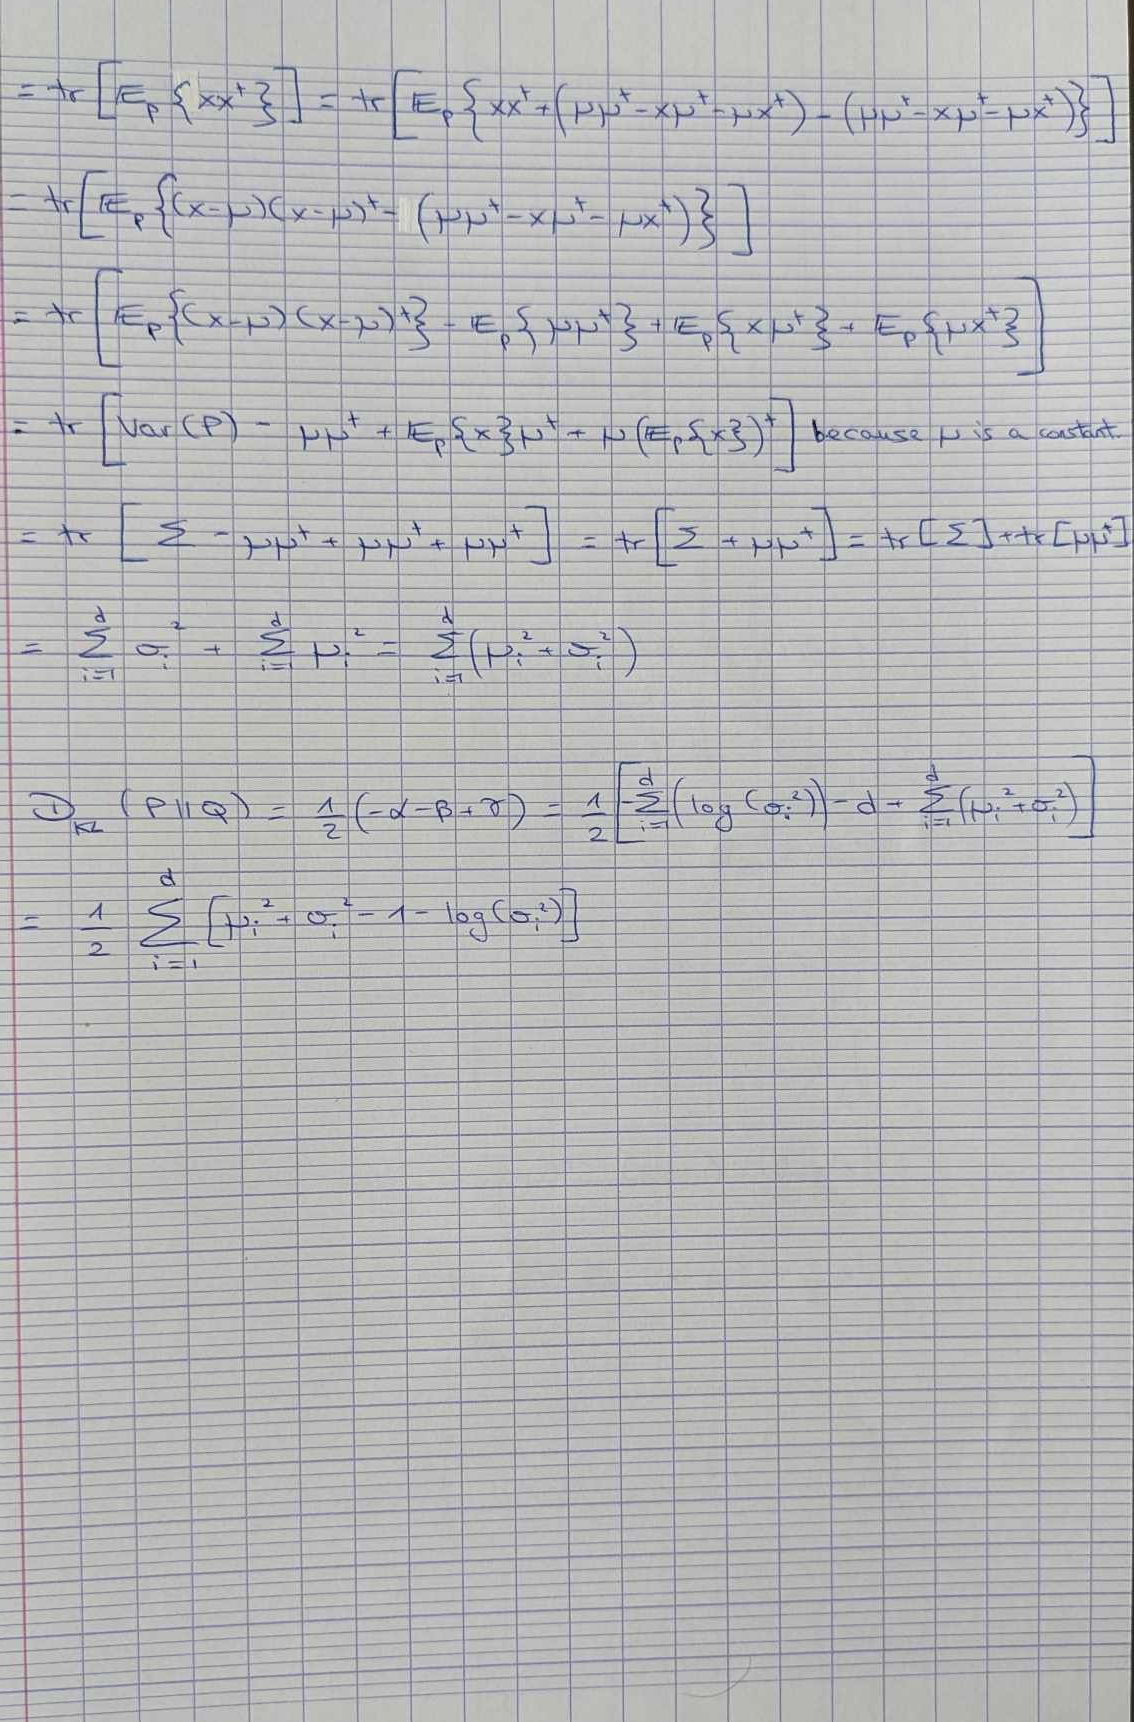 = tr [ 𝔼_P {xx^t} ] = tr [ 𝔼_P { xx^t + (μμ^t - xμ^t - μx^t) - (μμ^t - xμ^t - μx^t) } ]
= tr [ 𝔼_P { (x-μ)(x-μ)^t - (μμ^t - xμ^t - μx^t) } ]
= tr [ 𝔼_P { (x-μ)(x-μ)^t } - 𝔼_P { μμ^t } + 𝔼_P { xμ^t } + 𝔼_P { μx^t } ]
= tr [ Var(P) - μμ^t + 𝔼_P {x} μ^t + μ (𝔼_P {x})^t ] because μ is a constant.
= tr [ Σ - μμ^t + μμ^t + μμ^t ] = tr [ Σ + μμ^t ] = tr [Σ] + tr [μμ^t]
= ∑_{i=1}^d σ_i^2 + ∑_{i=1}^d μ_i^2 = ∑_{i=1}^d (μ_i^2 + σ_i^2)
D_KL (P||Q) = 1/2 (-α - β + γ) = 1/2 [ -∑_{i=1}^d (log(σ_i^2)) - d + ∑_{i=1}^d (μ_i^2 + σ_i^2) ]
= 1/2 ∑_{i=1}^d [ μ_i^2 + σ_i^2 - 1 - log(σ_i^2) ]